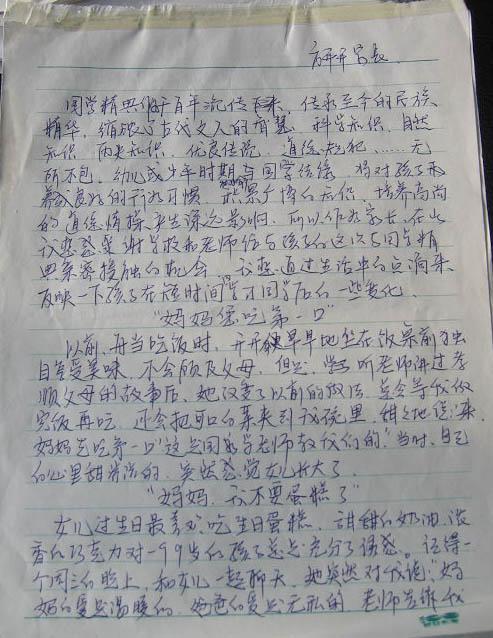 家长
国学精典他千百年流传下来，传承至今的民族
精华，缩银了古代文人的智慧，科学知识，自然
知识，历史知识，优良传说，道德规范……无
所不包，幼儿或少年时期与国学结缘，将对孩子
养成良好的行为习惯，积累广博的知识，培养高尚
的道德情操产生深远影响，所以作为家长，在此
我想感谢学校和老师给与孩子的这次与国学精
典亲密接触的机会。我想通过生活中的点滴来
反映一下孩子在短时间学习国学后的一些变化。
“妈妈您吃第一口”
以前，每当吃饭时，开开便早早地坐在饭桌前独
自享受美味，不会顾及父母，但是，当听老师讲过孝
顺父母的故事后，她改变了以前的做法，总会等我做
完饭再吃，还会把可口的菜夹到我碗里，甜甜地说“来，
妈妈先吃第一口”这是国学老师教我们的。”当时，自己
的心里甜滋滋的，突然感觉女儿长大了。
“妈妈，我不要蛋糕了”
女儿过生日最喜欢吃生日蛋糕，甜甜的奶油，浓
香的巧克力对一个9岁的孩子总是充满了诱惑。记得一
个周三的晚上，和女儿一起聊天，她突然对我说：“妈
妈的爱是温暖的，爸爸的爱是无私的，老师告诉我